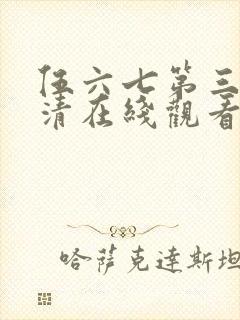 伍六七第三
清在綫觀看
哈薩克達斯坦